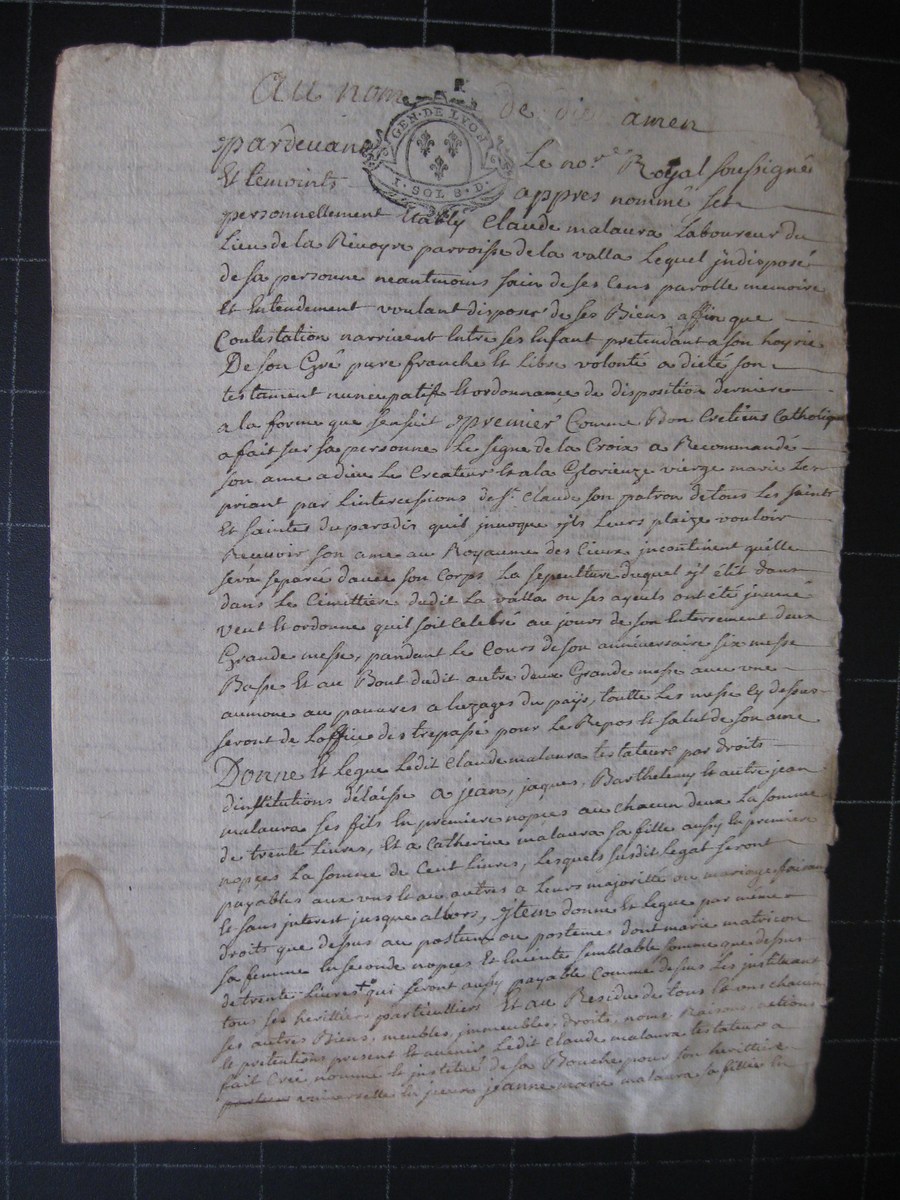 Au nom de dieu amen
GEN · DE LYON
I · SOL 8 · D ·
pardevant Le no.re Royal soussigné
Et temoints appres nommé fet
personnellement Etably Claude malaura Laboureur du
Lieu de la Rivoyre parroisse de la valla Lequel jndisposé
de sa personne neantmoins sain de ses Cens parolle memoire
Et Entendement voulant disposer de ses Biens affin que
Contestation narrivent Entre ses Enfant pretendant a son hoyrie
De son Gré pure franche Et libre volonté a dicté son
testament nuncupatif Et ordonnance de disposition derniere
a la forme que sensuit premier Comme Bon Cretiens Catholique
a fait sur sa personne Le signe de la Croix a Recommandé
son ame a dieu Le Createur Et a la Glorieuze vierge marie Les
priant par Lintercessions de St. Claude son patron de tous Les saints
Et saintes du paradis quil jnvoque ils Leurs plaize vouloir
Recevoir son ame au Royaume des Cieux jncontinent quelle
sera separée davec son Corps La sepulture duquel il élit dans
dans Le Cimittiere dudit La valla ou ses ayeuls ont été jnhumé
vent Et ordonne quil soit Celebré au jours de son Enterrement deux
Grande messe, pandant Le Cours de son anniversaire six messe
Basse Et au Bout dudit autre deux Grande messe avec une
aumone au pauvres a Luzages du pays, toutte Les messe cy dessus
seront de Loffice des trepassé pour Le Repos Et salut de son ame
Donne Et Legue Ledit Claude malaura testateurs par droits
dinstitutions délaisse a jean, jaques, Barthelemy Et autre jean
malaura ses fils En premiere nopces au chacun deux La somme
de trente Livres, Et a Catherine malaura sa fille aussy En premiere
nopçes La somme de Cent Livres, Lesquels susdit Legat seront
payables aux uns Et au autres a Leurs majoritté ou mariage
Et sans interest jusque alhors, jtem donne Et Legue par même
droits que dessus au postum ou postemes dont marie matricon
sa femme En seconde nopces Est Enceinte semblable somme que dessus
de trente Livres qui seront aussy payable Comme dessus Les jnstituant
tous ses herittiers particulliers Et au Residu de tous Et uns chacun
ses autres Biens, meubles, jmmeubles, droits, noms Raisons, actions
Et pretentions present Et avenir Ledit Claude malaura testateurs a
fait Créé, nommé Et jnstitué de sa Bouche pour son herittiere
universelle jeanne marie malaura sa fille En